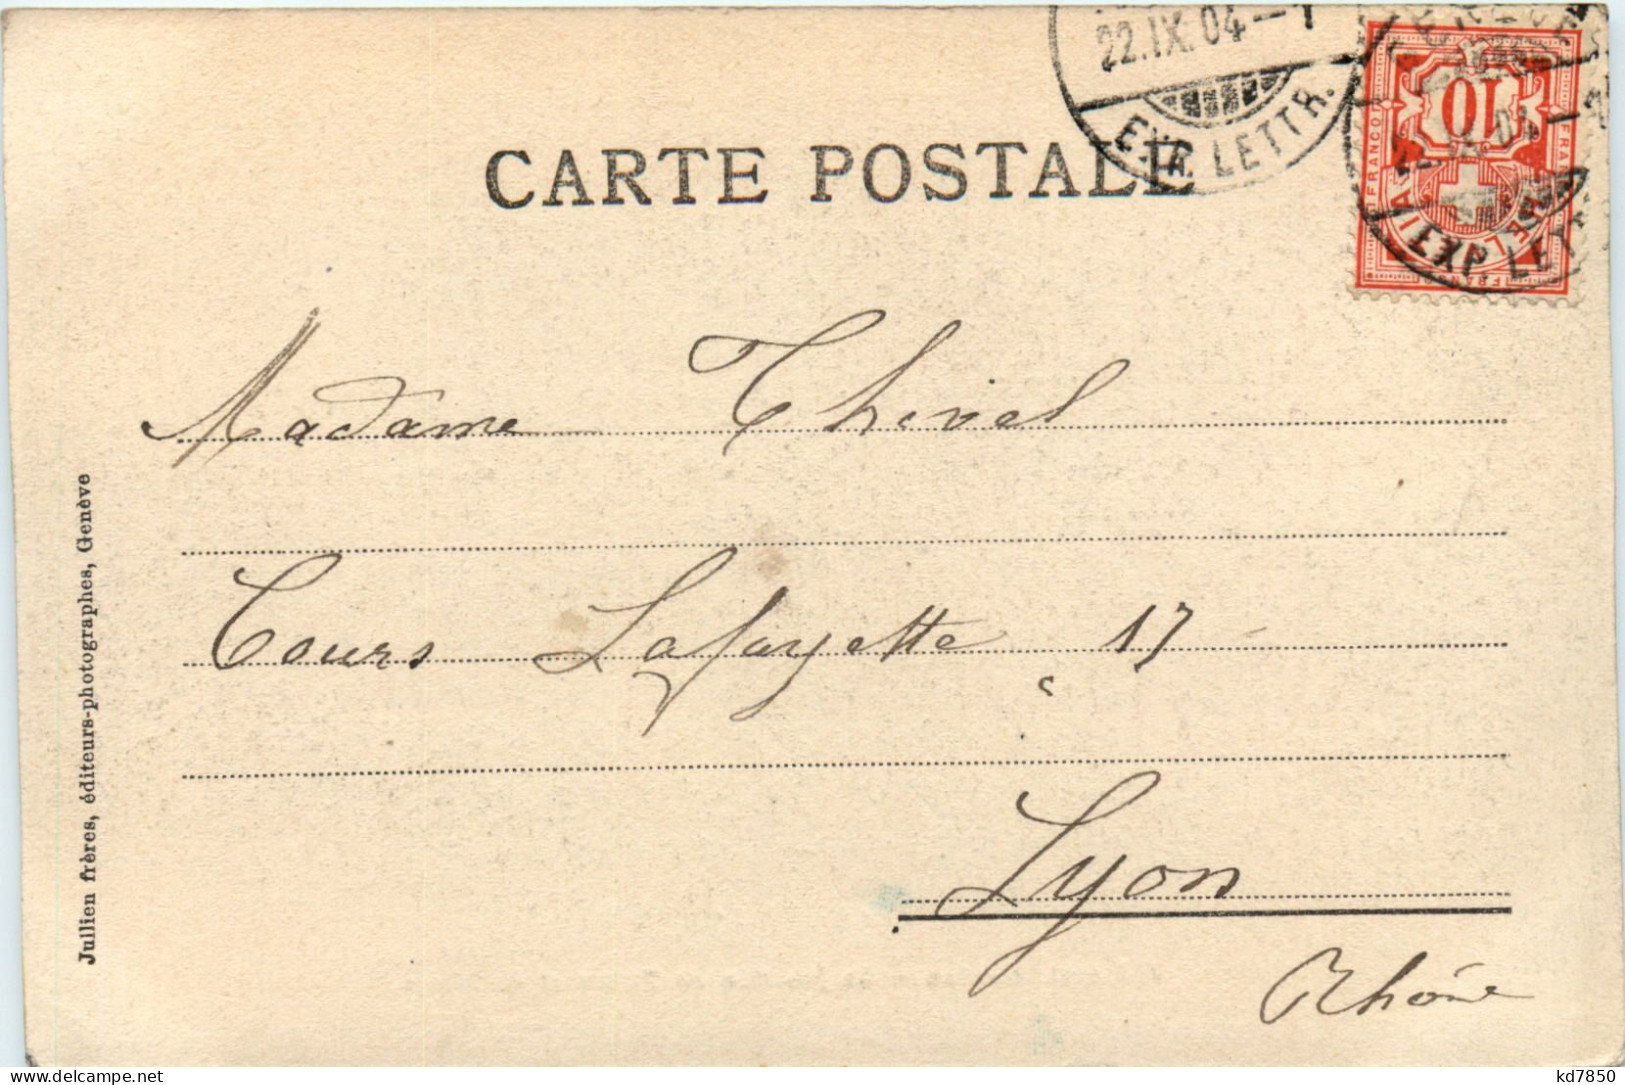 22.IX.04-1
EXP. LETTR.
10
FRANCO
EXP. LETT
CARTE POSTALE
Madame Thivel
Cours Lafayette 17
Lyon
Rhône
Jullien frères, éditeurs-photographes, Genève
kd7850